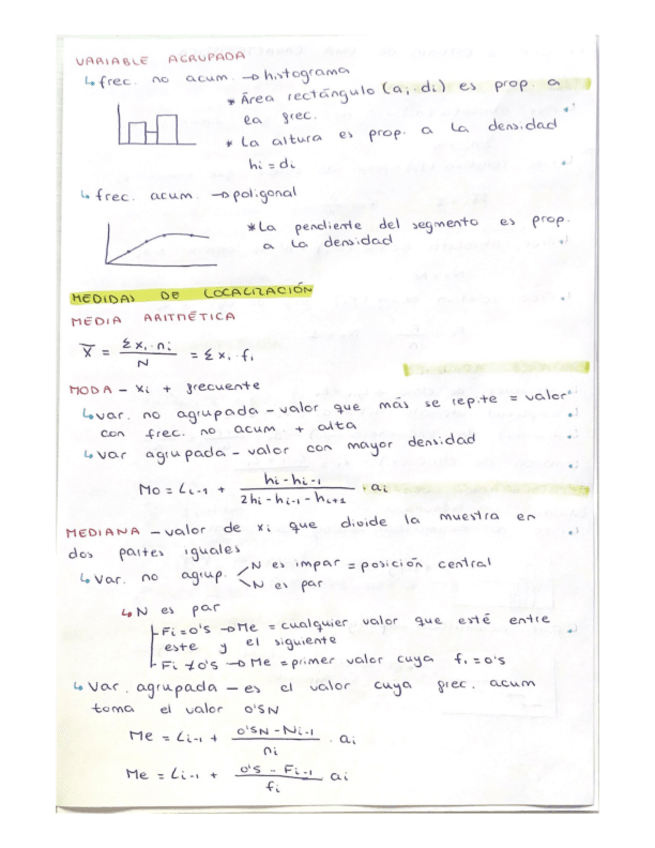 VARIABLE AGRUPADA
↳ frec. no acum. → histograma
* Área rectángulo (ai · di) es prop. a
la frec.
* La altura es prop. a la densidad
hi = di
↳ frec. acum. → poligonal
* La pendiente del segmento es prop.
a la densidad
MEDIDAS DE LOCALIZACIÓN
MEDIA ARITMÉTICA
X̄ = Σxi·ni / N = Σxi·fi
MODA – xi + frecuente
↳ var. no agrupada – valor que más se repite = valor
con frec. no acum + alta
↳ var agrupada – valor con mayor densidad
Mo = Li-1 + (hi - hi-1) / (2hi - hi-1 - hi+1) · ai
MEDIANA – valor de xi que divide la muestra en
dos partes iguales
↳ Var. no agrup. < N es impar = posición central
N es par
↳ N es par
Fi = 0'5 → Me = cualquier valor que esté entre
este y el siguiente
Fi ≠ 0'5 → Me = primer valor cuya fi = 0'5
↳ Var. agrupada – es el valor cuya frec. acum
toma el valor 0'5N
Me = Li-1 + (0'5N - Ni-1) / ni · ai
Me = Li-1 + (0'5 - Fi-1) / fi ai